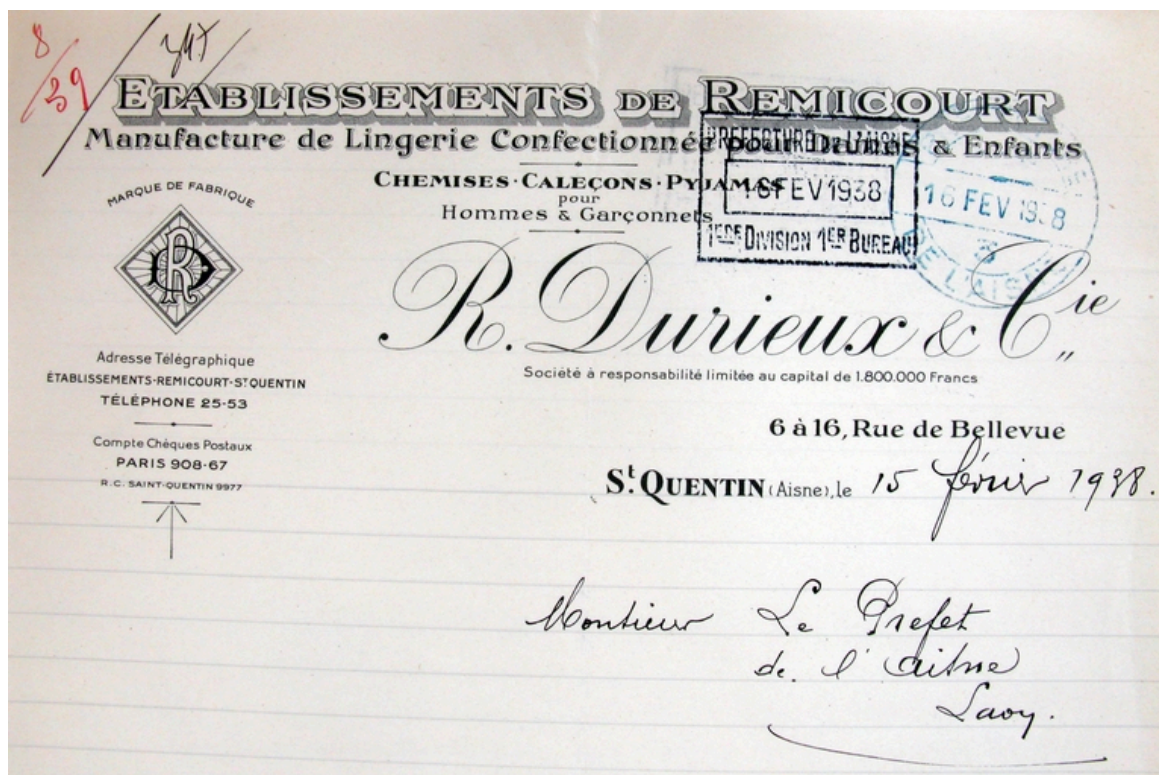 8/39
ETABLISSEMENTS DE REMICOURT
Manufacture de Lingerie Confectionnée pour Dames & Enfants
CHEMISES · CALEÇONS · PYJAMAS
pour
Hommes & Garçonnets
PREFECTURE DE L'AISNE
16 FEV 1938
1ERE DIVISION 1ER BUREAU
16 FEV 1938
DE L'AISNE
MARQUE DE FABRIQUE
R. Durieux & Cie
Société à responsabilité limitée au capital de 1.800.000 Francs
Adresse Télégraphique
ÉTABLISSEMENTS-REMICOURT-ST QUENTIN
TÉLÉPHONE 25-53
Compte Chèques Postaux
PARIS 908-67
R.C. SAINT-QUENTIN 9977
6 à 16, Rue de Bellevue
St. QUENTIN (Aisne), le 15 février 1938.
Monsieur Le Prefet
de l'Aisne
Laon.